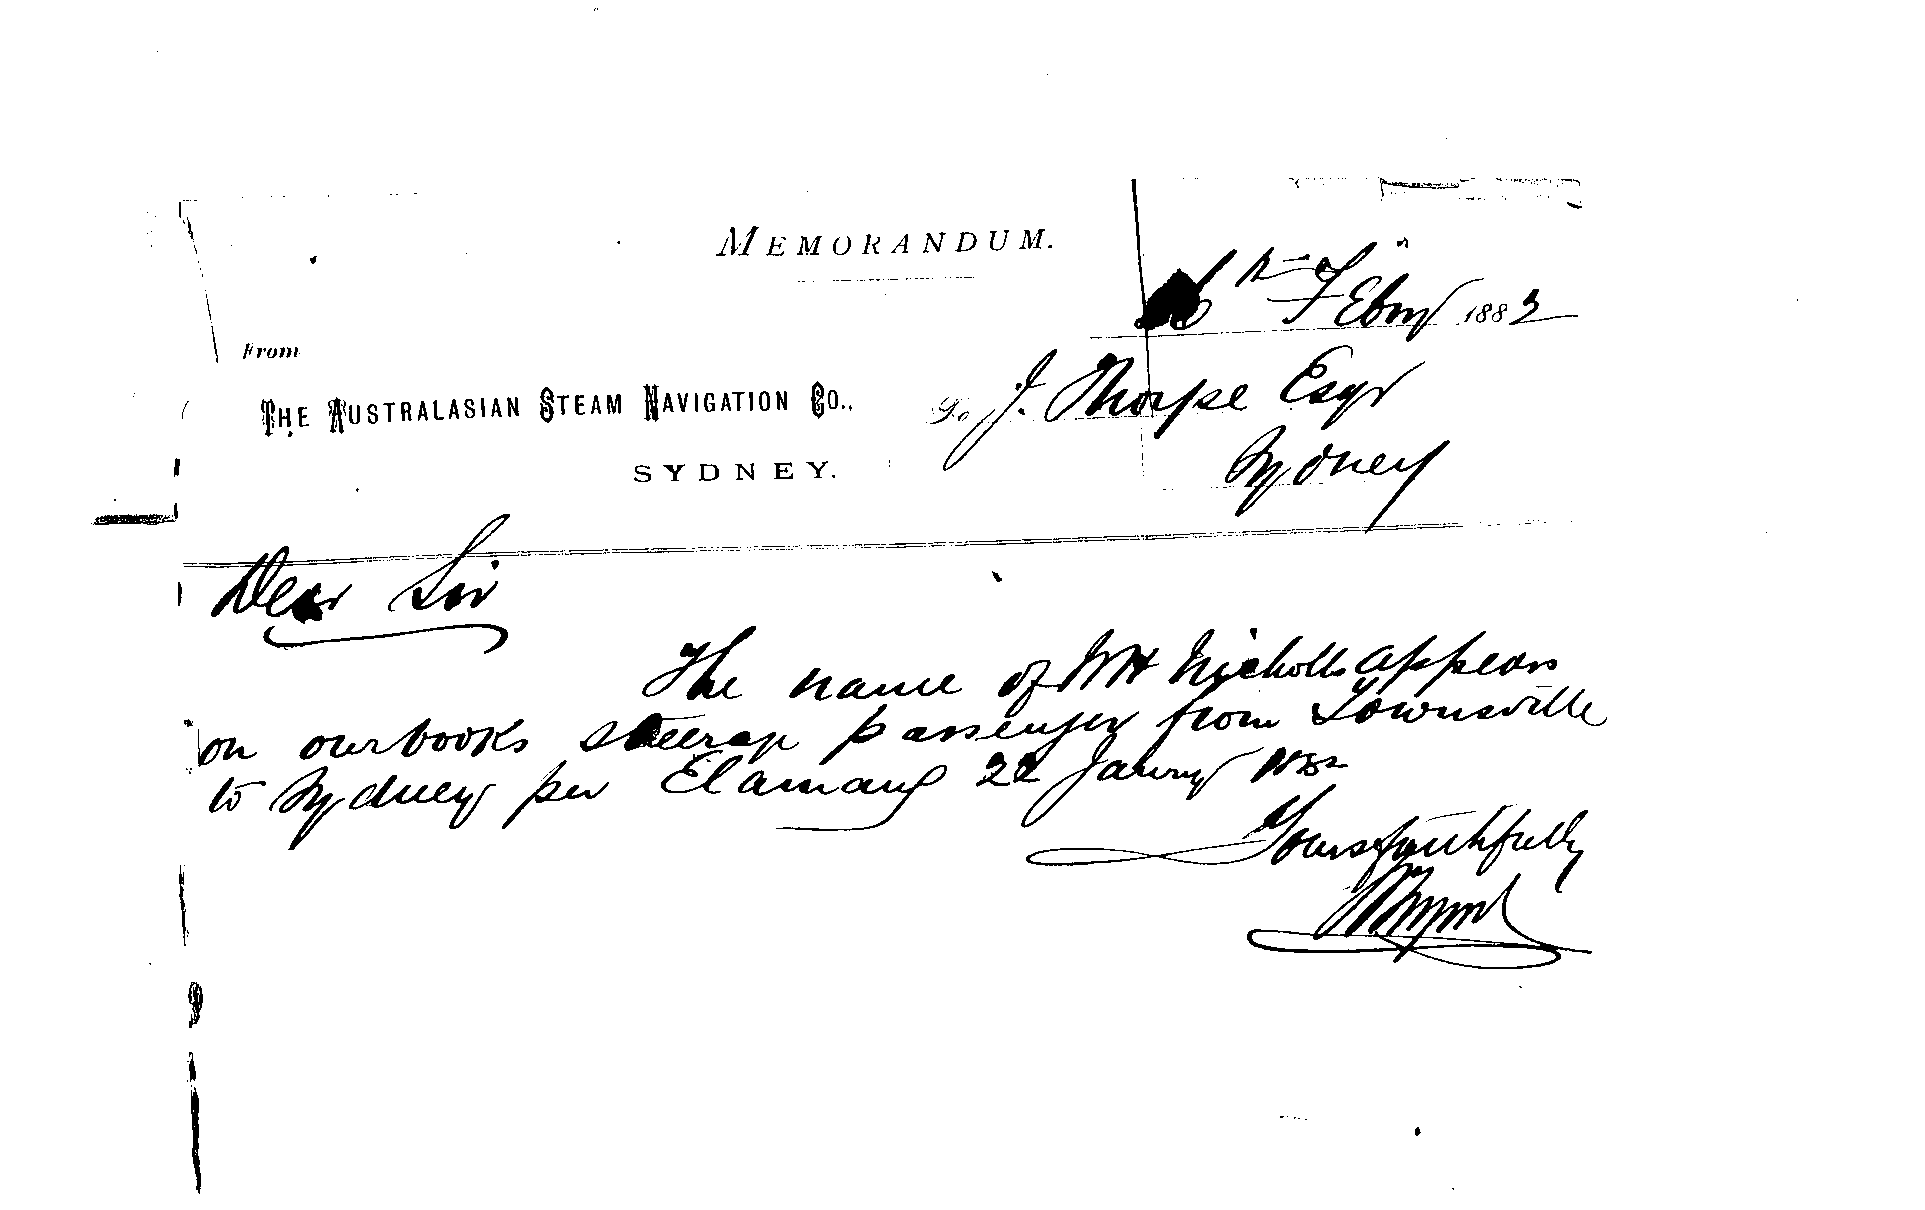 MEMORANDUM.
6th Febry 1882
From
THE AUSTRALASIAN STEAM NAVIGATION CO.,
To J. Thorpe Esqr
SYDNEY.
Sydney
Dear Sir
The name of WH Nicholls appears
on our books steerage passenger from Townsville
to Sydney per Elamang 22 Janry 1882
Yours faithfully